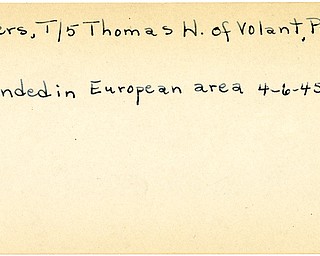 ers, T/5 Thomas W. of Volant, P
nded in European area 4-6-45